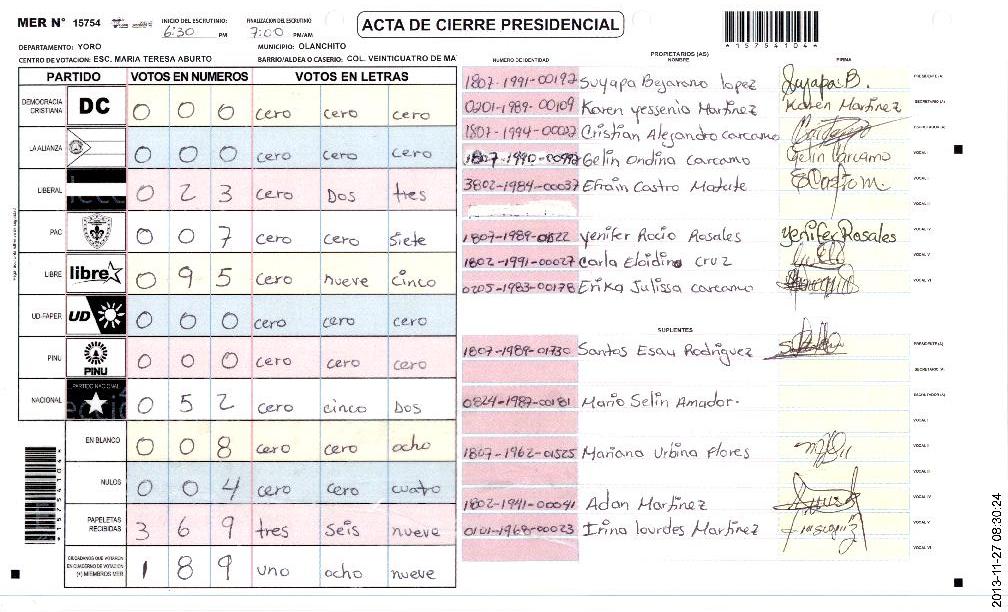 MER N° 15754
INICIO DEL ESCRUTINIO:
6:30 PM
FINALIZACION DEL ESCRUTINIO
7:00 PM/AM
ACTA DE CIERRE PRESIDENCIAL
*1575410 4*
DEPARTAMENTO: YORO
MUNICIPIO: OLANCHITO
CENTRO DE VOTACION: ESC. MARIA TERESA ABURTO
BARRIO/ALDEA O CASERIO: COL. VEINTICUATRO DE MA
PARTIDO VOTOS EN NUMEROS VOTOS EN LETRAS
DEMOCRACIA CRISTIANA DC 0 0 0 cero cero cero
LA ALIANZA 0 0 0 cero cero cero
LIBERAL 0 2 3 cero Dos tres
PAC 0 0 7 cero cero siete
LIBRE libre 0 9 5 cero nueve cinco
UD-FAPER UD 0 0 0 cero cero cero
PINU PINU 0 0 0 cero cero cero
NACIONAL PARTIDO NACIONAL 0 5 2 cero cinco Dos
EN BLANCO 0 0 8 cero cero ocho
NULOS 0 0 4 cero cero cuatro
PAPELETAS RECIBIDAS 3 6 9 tres seis nueve
CIUDADANOS QUE VOTARON EN CUADERNO DE VOTACION (+) MIEMBROS MER 1 8 9 uno ocho nueve
PROPIETARIOS (AS)
NUMERO DE IDENTIDAD NOMBRE FIRMA
1807-1991-00192 Suyapa Bejarano lopez Suyapa B. PRESIDENTE(A)
0201-1989-00109 Karen yessenia Martinez Karen Martinez SECRETARIO (A)
1807-1994-00022 Cristian Alejandro carcamo ESCRUTADOR (A)
Gelin Ondina carcamo Gelin Carcamo VOCAL I
3802-1984-00037 Efrain Castro Matute ECastro M. VOCAL II
1807-1989-01522 yenifer Rocio Rosales yenifer Rosales VOCAL IV
1802-1991-00027 Carla Eloidina cruz VOCAL V
0205-1983-00178 Erika Julissa carcamo VOCAL VI
SUPLENTES
1807-1989-01730 Santos Esau Rodriguez PRESIDENTE(A)
SECRETARIO (A)
0824-1987-00181 Mario Selin Amador. ESCRUTADOR (A)
VOCAL I
1807-1962-01525 Mariana Urbina Flores VOCAL II
VOCAL III
1802-1991-00041 Adan Martinez VOCAL IV
0101-1968-00023 Irina lourdes Martinez VOCAL V
VOCAL VI
2013-11-27 08:30:24